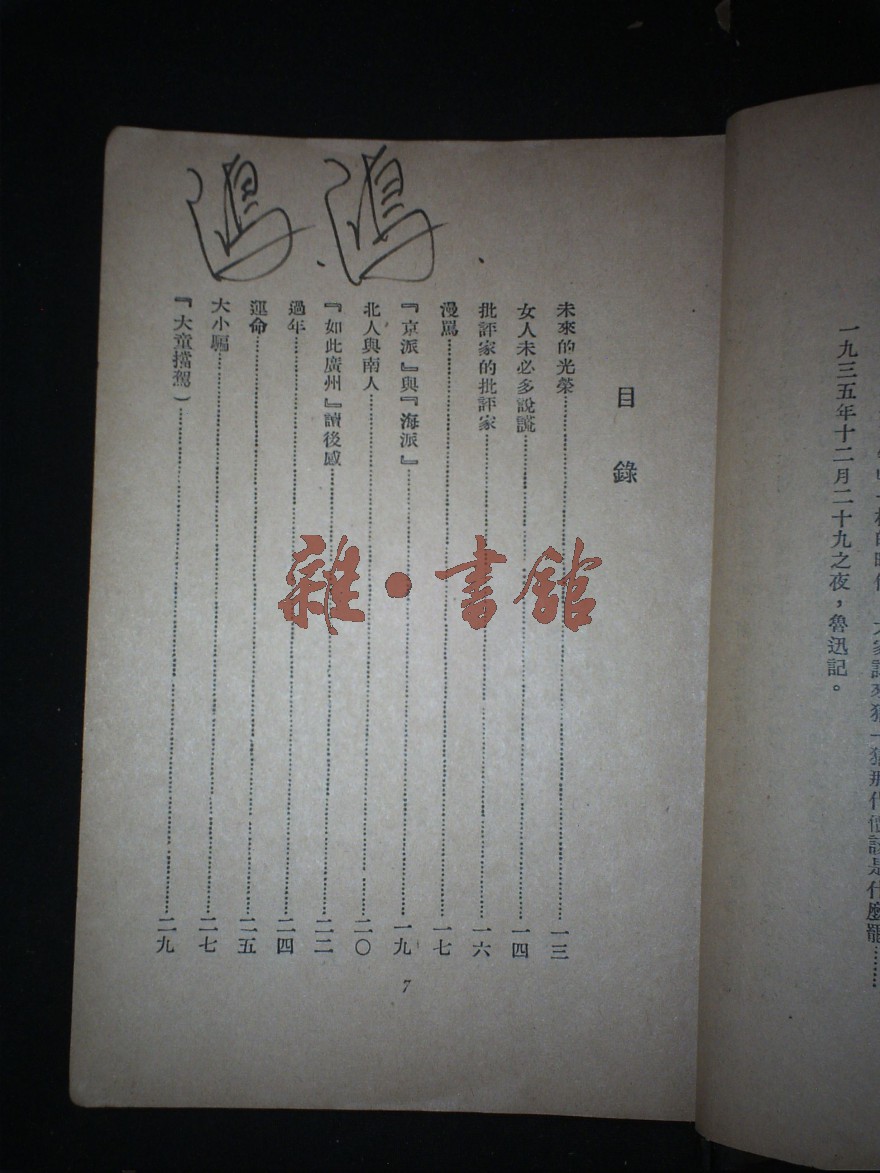 一九三五年十二月二十九之夜，魯迅記。
目錄
未來的光榮……一三
女人未必多說謊……一四
批評家的批評家……一六
漫罵……一七
『京派』與『海派』……一九
北人與南人……二〇
『如此廣州』讀後感……二二
過年……二四
運命……二五
大小騙……二七
『大童擋駕）……二九
7
雜·書館